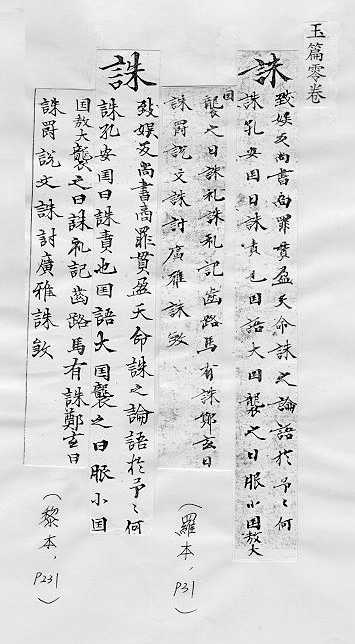 玉篇零卷
誅
致娱反尚書商罪貫盈天命誅之論語於予〻何
誅孔安国曰誅責也国語大国襲之曰服小国敖大
国
襲之曰誅礼誅礼記齒路馬有誅鄭玄曰
誅爵說文誅討廣雅誅煞
（羅本，P31）
誅
致娱反尚書商罪貫盈天命誅之論語於予〻何
誅孔安国曰誅責也国語大国襲之曰服小国
国敖大襲之曰誅礼記齒路馬有誅鄭玄曰
誅爵說文誅討廣雅誅煞
（黎本，P231）